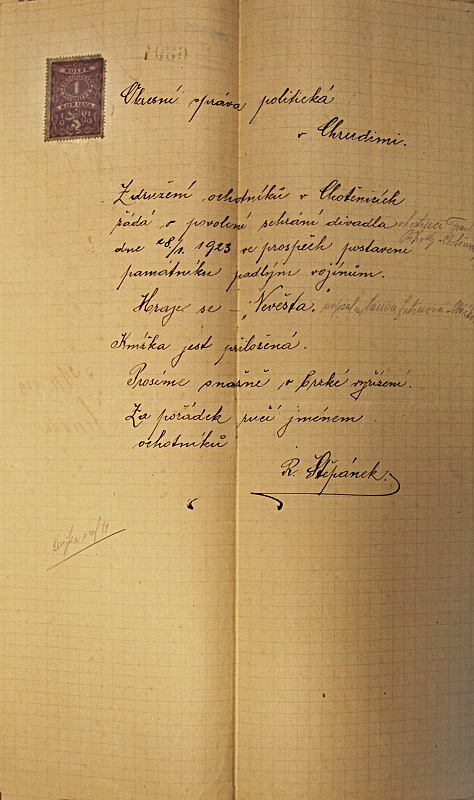 KOLEK
1
KORUNA
Okresní správa politická
v Chrudimi.
Združení ochotníků v Chotěnicích
žádá o povolení sehrání divadla
dne 28/1. 1923 ve prospěch postavení
památníku padlým vojínům.
Hraje se – „Nevěsta." napsala
Knížka jest přiložená.
Prosíme snažně o brzké vyřízení.
Za pořádek ručí jménem
ochotníků
R. Štěpánek.